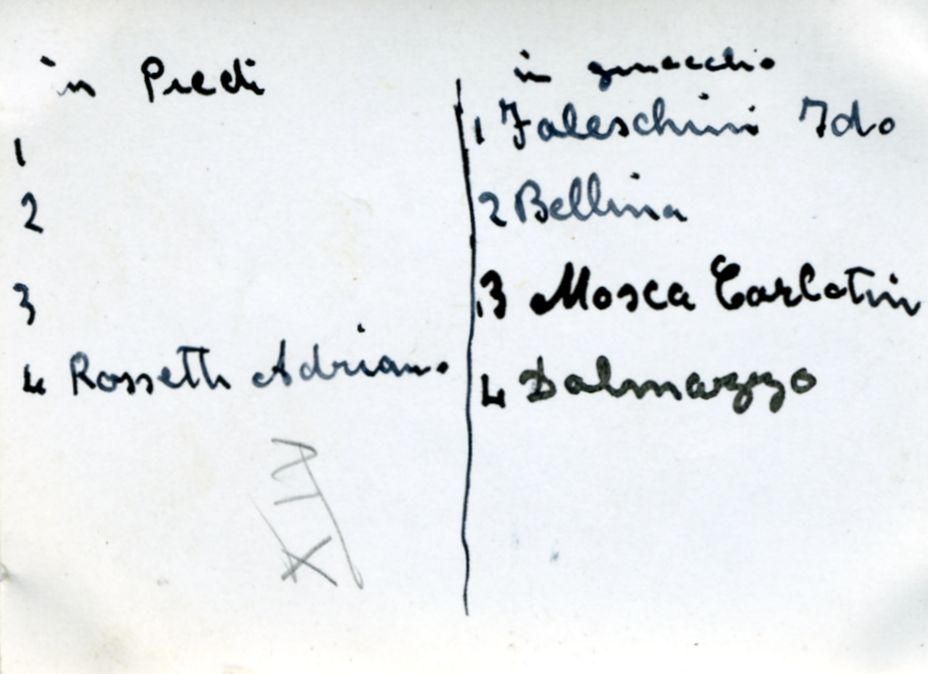 in Piedi
1
2
3
4 Rossetti Adriano
in ginocchio
1 Faleschini Ido
2 Bellina
3 Mosca Carlotin
4 Dalmazzo